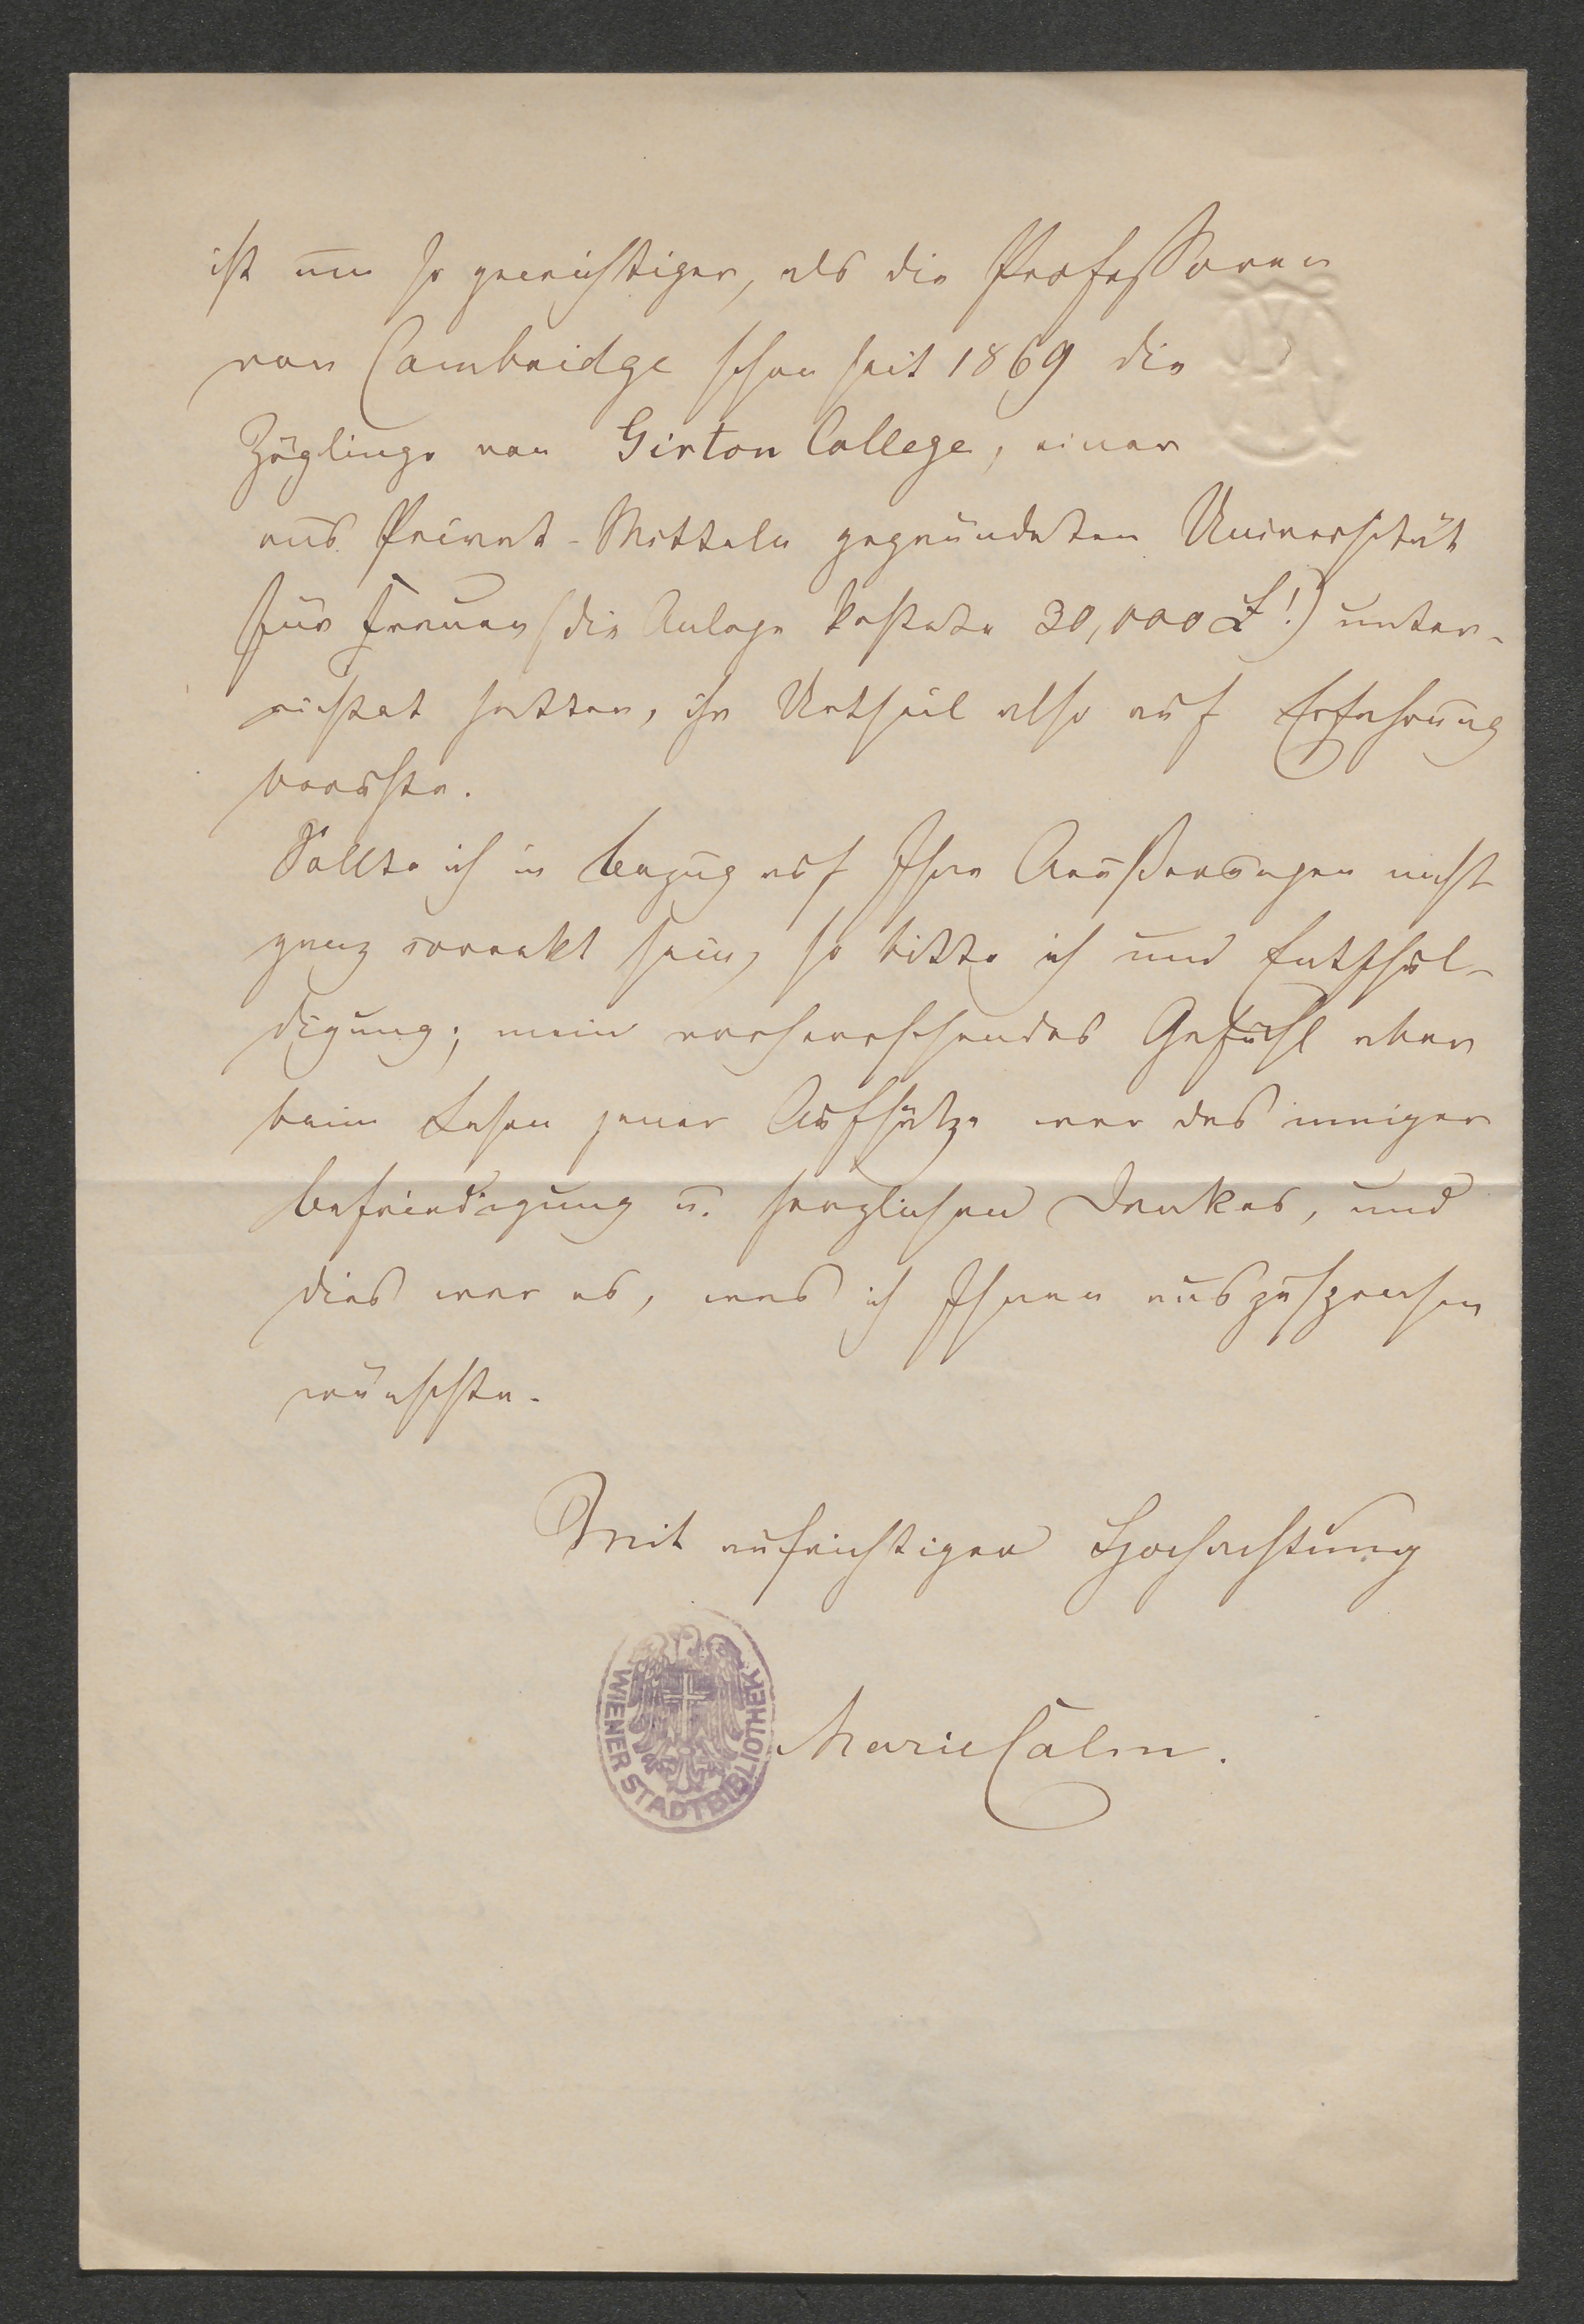 ist um so gewichtiger, als die Professoren
von Cambridge schon seit 1869 die
Zöglinge von Girton College, einer
aus Privat-Mitteln gegründeten Universität
für Frauen (die Anlage kostete 30,000 £!) unter-
richtet hatten, ihr Urtheil also auf Erfahrung
beruhte.
Sollte ich in Bezug auf Ihre Aeußerungen nicht
ganz correkt sein, so bitte ich um Entschul-
digung; mein vorherrschendes Gefühl aber
beim Lesen jener Aufsätze war das inniger
Befriedigung u. herzlichen Dankes, und
dies war es, was ich Ihnen auszusprechen
wünschte.
Mit aufrichtiger Hochachtung
Marie Calm.
WIENER STADTBIBLIOTHEK